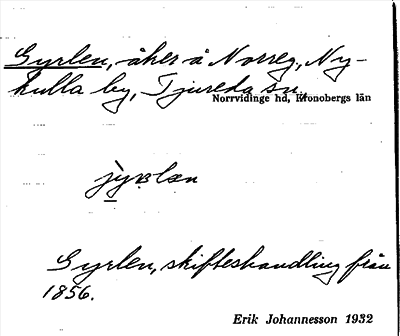 Gyrlen, åker å Norreg., Ny-
kulla by, Tjureda sn.
Norrvidinge hd, Kronobergs län
Gyrlen, skifteshandling från
1856.
Erik Johannesson 1932